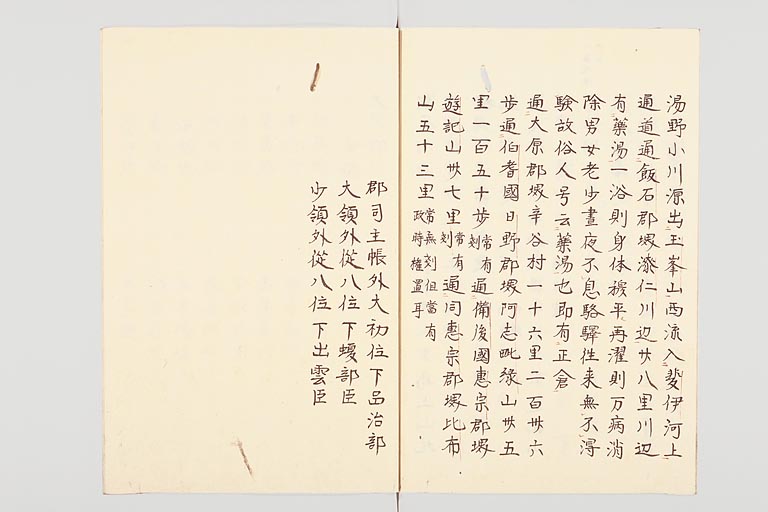 湯野小川源出玉峯山西流入斐伊河上
通道通飯石郡堺漆仁川辺廾八里川辺
有藥湯一浴則身体穏平再濯則万病消
除男女老少晝夜不息駱驛徃来無不淂
験故俗人号云藥湯也即有正倉
通大原郡堺辛谷村一十六里二百卅六
步通伯耆國日野郡堺阿志毗縁山卅五
里一百五十步常有剗通備後國恵宗郡堺
遊記山卅七里常有剗通同恵宗郡堺比布
山五十三里常無剗但當有政時權置耳
郡司主帳外大初位下品治部
大領外從八位下蝮部臣
少領外從八位下出雲臣